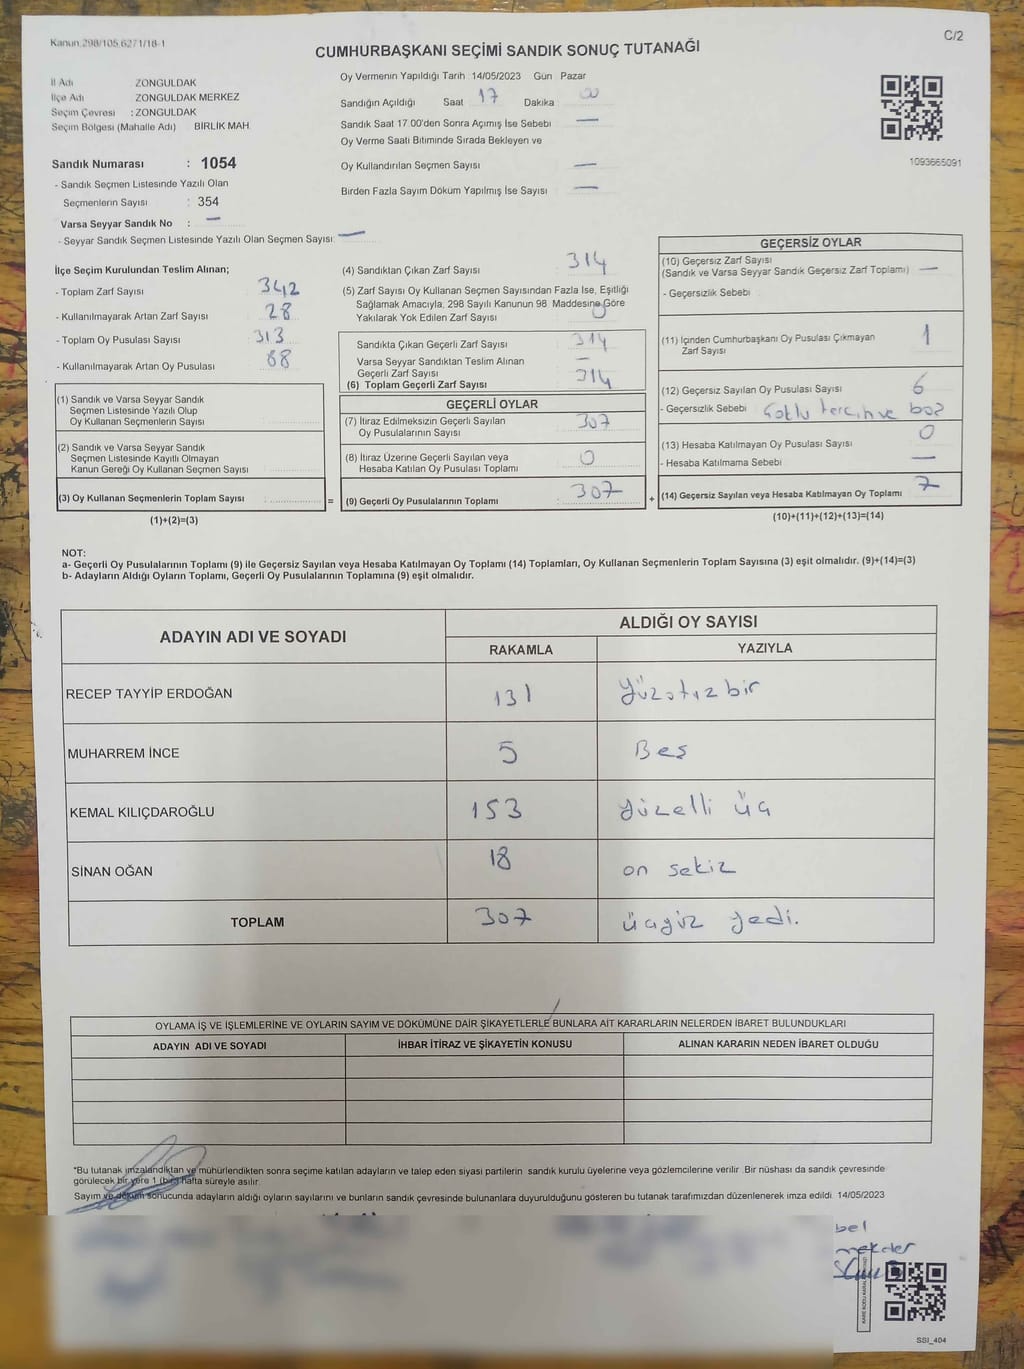 Kanun.298/105.6271/18-1
C/2
CUMHURBAŞKANI SEÇİMİ SANDIK SONUÇ TUTANAĞI
İl Adı ZONGULDAK
İlçe Adı ZONGULDAK MERKEZ
Seçim Çevresi : ZONGULDAK
Seçim Bölgesi (Mahalle Adı) BİRLİK MAH
Sandık Numarası : 1054
- Sandık Seçmen Listesinde Yazılı Olan
Seçmenlerin Sayısı : 354
Varsa Seyyar Sandık No : —
- Seyyar Sandık Seçmen Listesinde Yazılı Olan Seçmen Sayısı: —
Oy Vermenin Yapıldığı Tarih 14/05/2023 Gün Pazar
Sandığın Açıldığı Saat 17 Dakika 00
Sandık Saat 17.00'den Sonra Açımış İse Sebebi —
Oy Verme Saati Bitiminde Sırada Bekleyen ve
Oy Kullandırılan Seçmen Sayısı —
Birden Fazla Sayım Döküm Yapılmış İse Sayısı —
1093665091
İlçe Seçim Kurulundan Teslim Alınan;
- Toplam Zarf Sayısı 342
- Kullanılmayarak Artan Zarf Sayısı 28
- Toplam Oy Pusulası Sayısı 313
- Kullanılmayarak Artan Oy Pusulası 88
(1) Sandık ve Varsa Seyyar Sandık
Seçmen Listesinde Yazılı Olup
Oy Kullanan Seçmenlerin Sayısı
(2) Sandık ve Varsa Seyyar Sandık
Seçmen Listesinde Kayıtlı Olmayan
Kanun Gereği Oy Kullanan Seçmen Sayısı
(3) Oy Kullanan Seçmenlerin Toplam Sayısı
(1)+(2)=(3)
=
(4) Sandıktan Çıkan Zarf Sayısı 314
(5) Zarf Sayısı Oy Kullanan Seçmen Sayısından Fazla İse, Eşitliği
Sağlamak Amacıyla, 298 Sayılı Kanunun 98. Maddesine Göre
Yakılarak Yok Edilen Zarf Sayısı 0
Sandıkta Çıkan Geçerli Zarf Sayısı 314
Varsa Seyyar Sandıktan Teslim Alınan
Geçerli Zarf Sayısı —
(6) Toplam Geçerli Zarf Sayısı 314
GEÇERLİ OYLAR
(7) İtiraz Edilmeksizin Geçerli Sayılan
Oy Pusulalarının Sayısı 307
(8) İtiraz Üzerine Geçerli Sayılan veya
Hesaba Katılan Oy Pusulası Toplamı 0
(9) Geçerli Oy Pusulalarının Toplamı 307
+
GEÇERSİZ OYLAR
(10) Geçersiz Zarf Sayısı
(Sandık ve Varsa Seyyar Sandık Geçersiz Zarf Toplamı) —
- Geçersizlik Sebebi
(11) İçinden Cumhurbaşkanı Oy Pusulası Çıkmayan
Zarf Sayısı 1
(12) Geçersiz Sayılan Oy Pusulası Sayısı 6
- Geçersizlik Sebebi Çoklu tercih ve boş
(13) Hesaba Katılmayan Oy Pusulası Sayısı 0
- Hesaba Katılmama Sebebi —
(14) Geçersiz Sayılan veya Hesaba Katılmayan Oy Toplamı 7
(10)+(11)+(12)+(13)=(14)
NOT:
a- Geçerli Oy Pusulalarının Toplamı (9) ile Geçersiz Sayılan veya Hesaba Katılmayan Oy Toplamı (14) Toplamları, Oy Kullanan Seçmenlerin Toplam Sayısına (3) eşit olmalıdır. (9)+(14)=(3)
b- Adayların Aldığı Oyların Toplamı, Geçerli Oy Pusulalarının Toplamına (9) eşit olmalıdır.
ADAYIN ADI VE SOYADI
ALDIĞI OY SAYISI
RAKAMLA YAZIYLA
RECEP TAYYİP ERDOĞAN 131 Yüzotuzbir
MUHARREM İNCE 5 Beş
KEMAL KILIÇDAROĞLU 153 Yüzelli üç
SİNAN OĞAN 18 on sekiz
TOPLAM 307 üçyüz yedi.
OYLAMA İŞ VE İŞLEMLERİNE VE OYLARIN SAYIM VE DÖKÜMÜNE DAİR ŞİKAYETLERLE BUNLARA AİT KARARLARIN NELERDEN İBARET BULUNDUKLARI
ADAYIN ADI VE SOYADI İHBAR İTİRAZ VE ŞİKAYETİN KONUSU ALINAN KARARIN NEDEN İBARET OLDUĞU
*Bu tutanak imzalandıktan ve mühürlendikten sonra seçime katılan adayların ve talep eden siyasi partilerin sandık kurulu üyelerine veya gözlemcilerine verilir. Bir nüshası da sandık çevresinde
görülecek bir yere 1 (bir) hafta süreyle asılır.
Sayım ve döküm sonucunda adayların aldığı oyların sayılarını ve bunların sandık çevresinde bulunanlara duyurulduğunu gösteren bu tutanak tarafımızdan düzenlenerek imza edildi. 14/05/2023
SSI_404